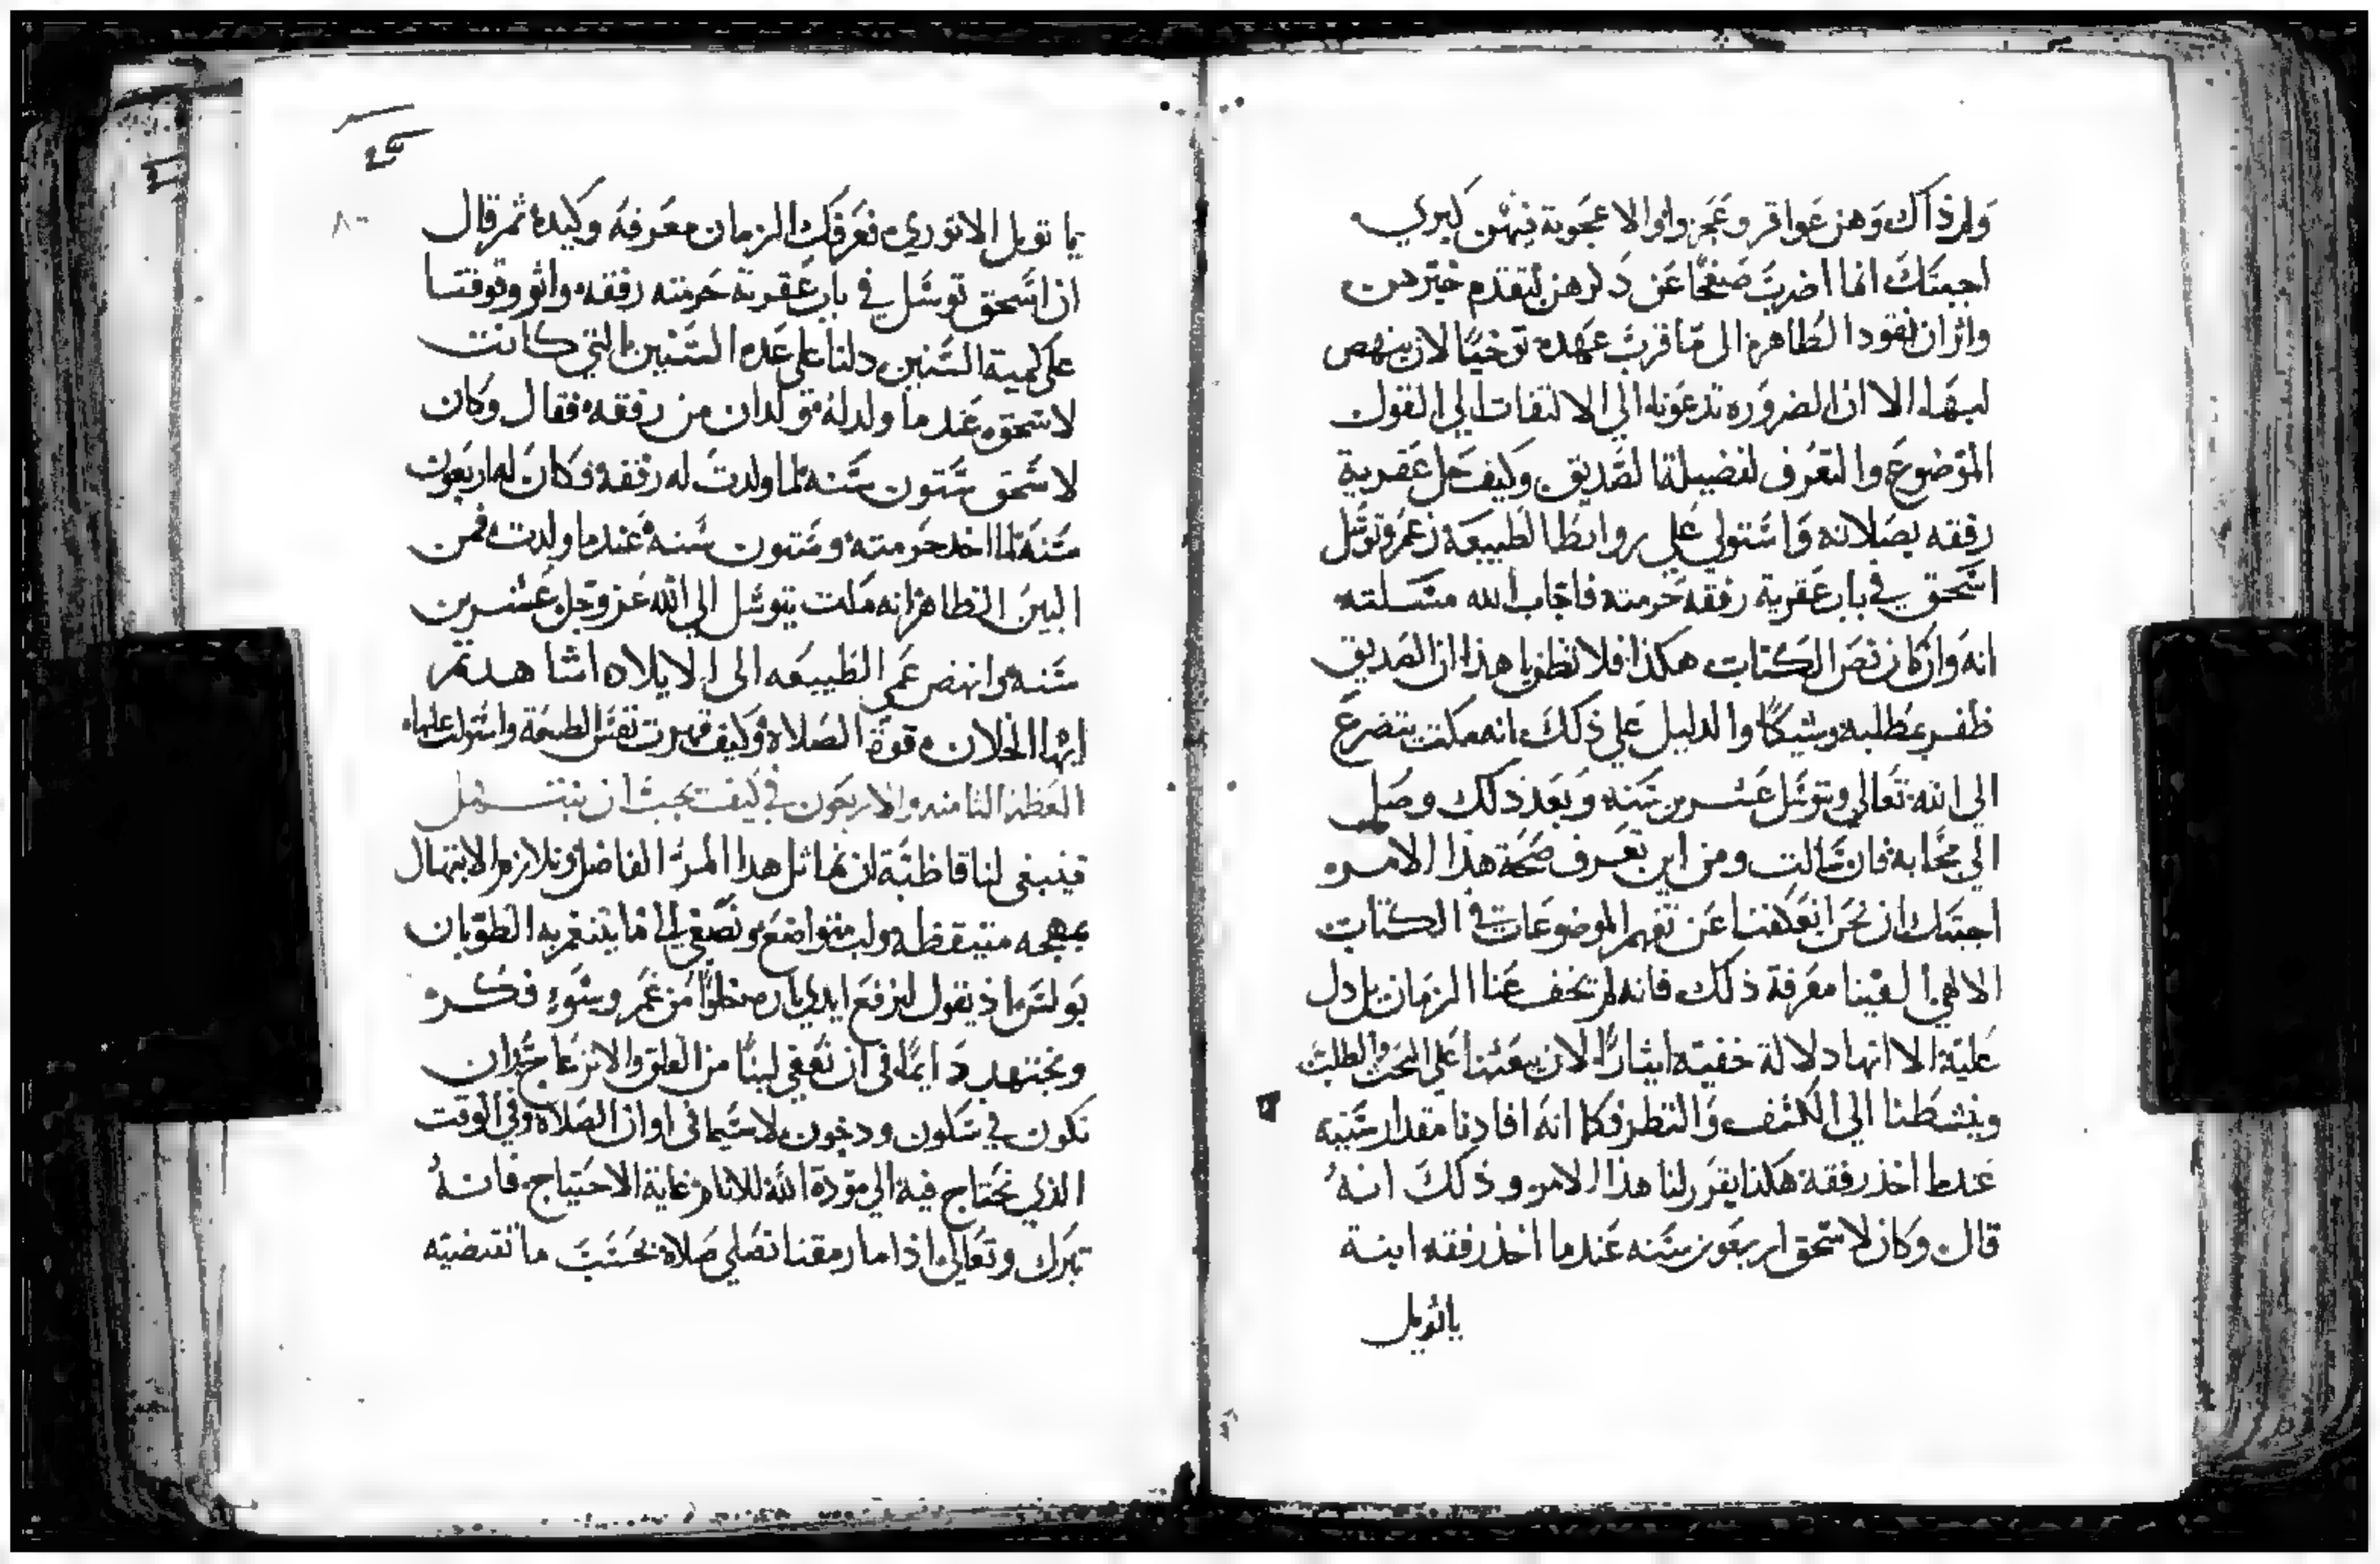 ولم ذاك وهن عواقر وعجز واوالاعجوبة فيهن كبري
اجبتك انما اضربت صفحا عن ذكرهن ليتقدم خبرهن
واثر ان نقود الظاهره الى ما قرب عهده توخيا لان ينهض
لبها الا ان الضروره تدعونا الي الالتفات الي القول
الموضوع والتعرف لفضيلة الصديق وكيف حل عقرية
رفقه بصلاته واستولي علي روابط الطبيعه زعم وتوسل
اسحق في باب عقرية رفقه حرمته فاجاب الله مسلته
انه وان كان نص الكتاب هكذا فلا تظن يا هذا ان الصديق
ظفر بمطلبه وشيكا والدليل علي ذلك انه مكث يتضرع
الي الله تعالي ويتوسل عشرين سنه وبعد ذلك وصل
الي محابه فان سالت ومن اين تعرف صحة هذا الامر
اجبتك ان نحن انعكفنا عن تفهم الموضوعات في الكتاب
الالهي الفينا معرفة ذلك فانه لم يخف عنا الزمان بل دل
عليه الا انها دلالة خفيه ايثارا لان يبعثنا علي البحث والطلب
وينشطنا الي الكشف والنظر فكما انه افادنا مقدار سنيه
عندما اخذ رفقة هكذا يقرر لنا هذا الامر وذلك انه
قال وكان لاسحق اربعون سنه عندما اخذ رفقه ابنة
ياثويل
يا ثويل الاثوري فعرفك الزمان معرفه وكيده ثم قال
ان اسحق توسل في باب عقرية حرمته رفقه واثر وقوفنا
على كمية السنين دلنا على عدة السنين التي كانت
لاسحق عندما ولد له مولدان من رفقه فقال وكان
لاسحق ستون سنه لما ولدت له رفقه فكان له اربعون
سنة لما اخذ حرمته وستون سنه عندما ولدت فمن
البين الظاهر انه مكث يتوسل الي الله عز وجل عشرين
سنه وانهض عمي الطبيعه الى الايلاد اشاهدتم
ايها الخلان قوة الصلاه وكيف قهرت نفس الطبيعة واستولت عليها
العظة الثامنه والاربعون في كيف يجب ان نبتهل
فينبغي لنا قاطبة ان نماثل هذا المرء الفاضل ونلازم الابتهال
بمهجه متيقظه ولب متواضع ونصغي الي ما يترنم به الطوبان
بولس اذ يقول لنرفع ايدي بارة خلوا من غم وسوء فكر
ونجتهد دايما في ان نعفي لبنا من القلق والانزعاج وان
نكون في سكون ودعون لا سيما في اوان الصلاه وفي الوقت
الذي نحتاج فيه الي مودة الله للانام غاية الاحتياج فانه
تبرك وتعالي اذا ما رمقنا نصلي صلاة بحسب ما تقتضيه